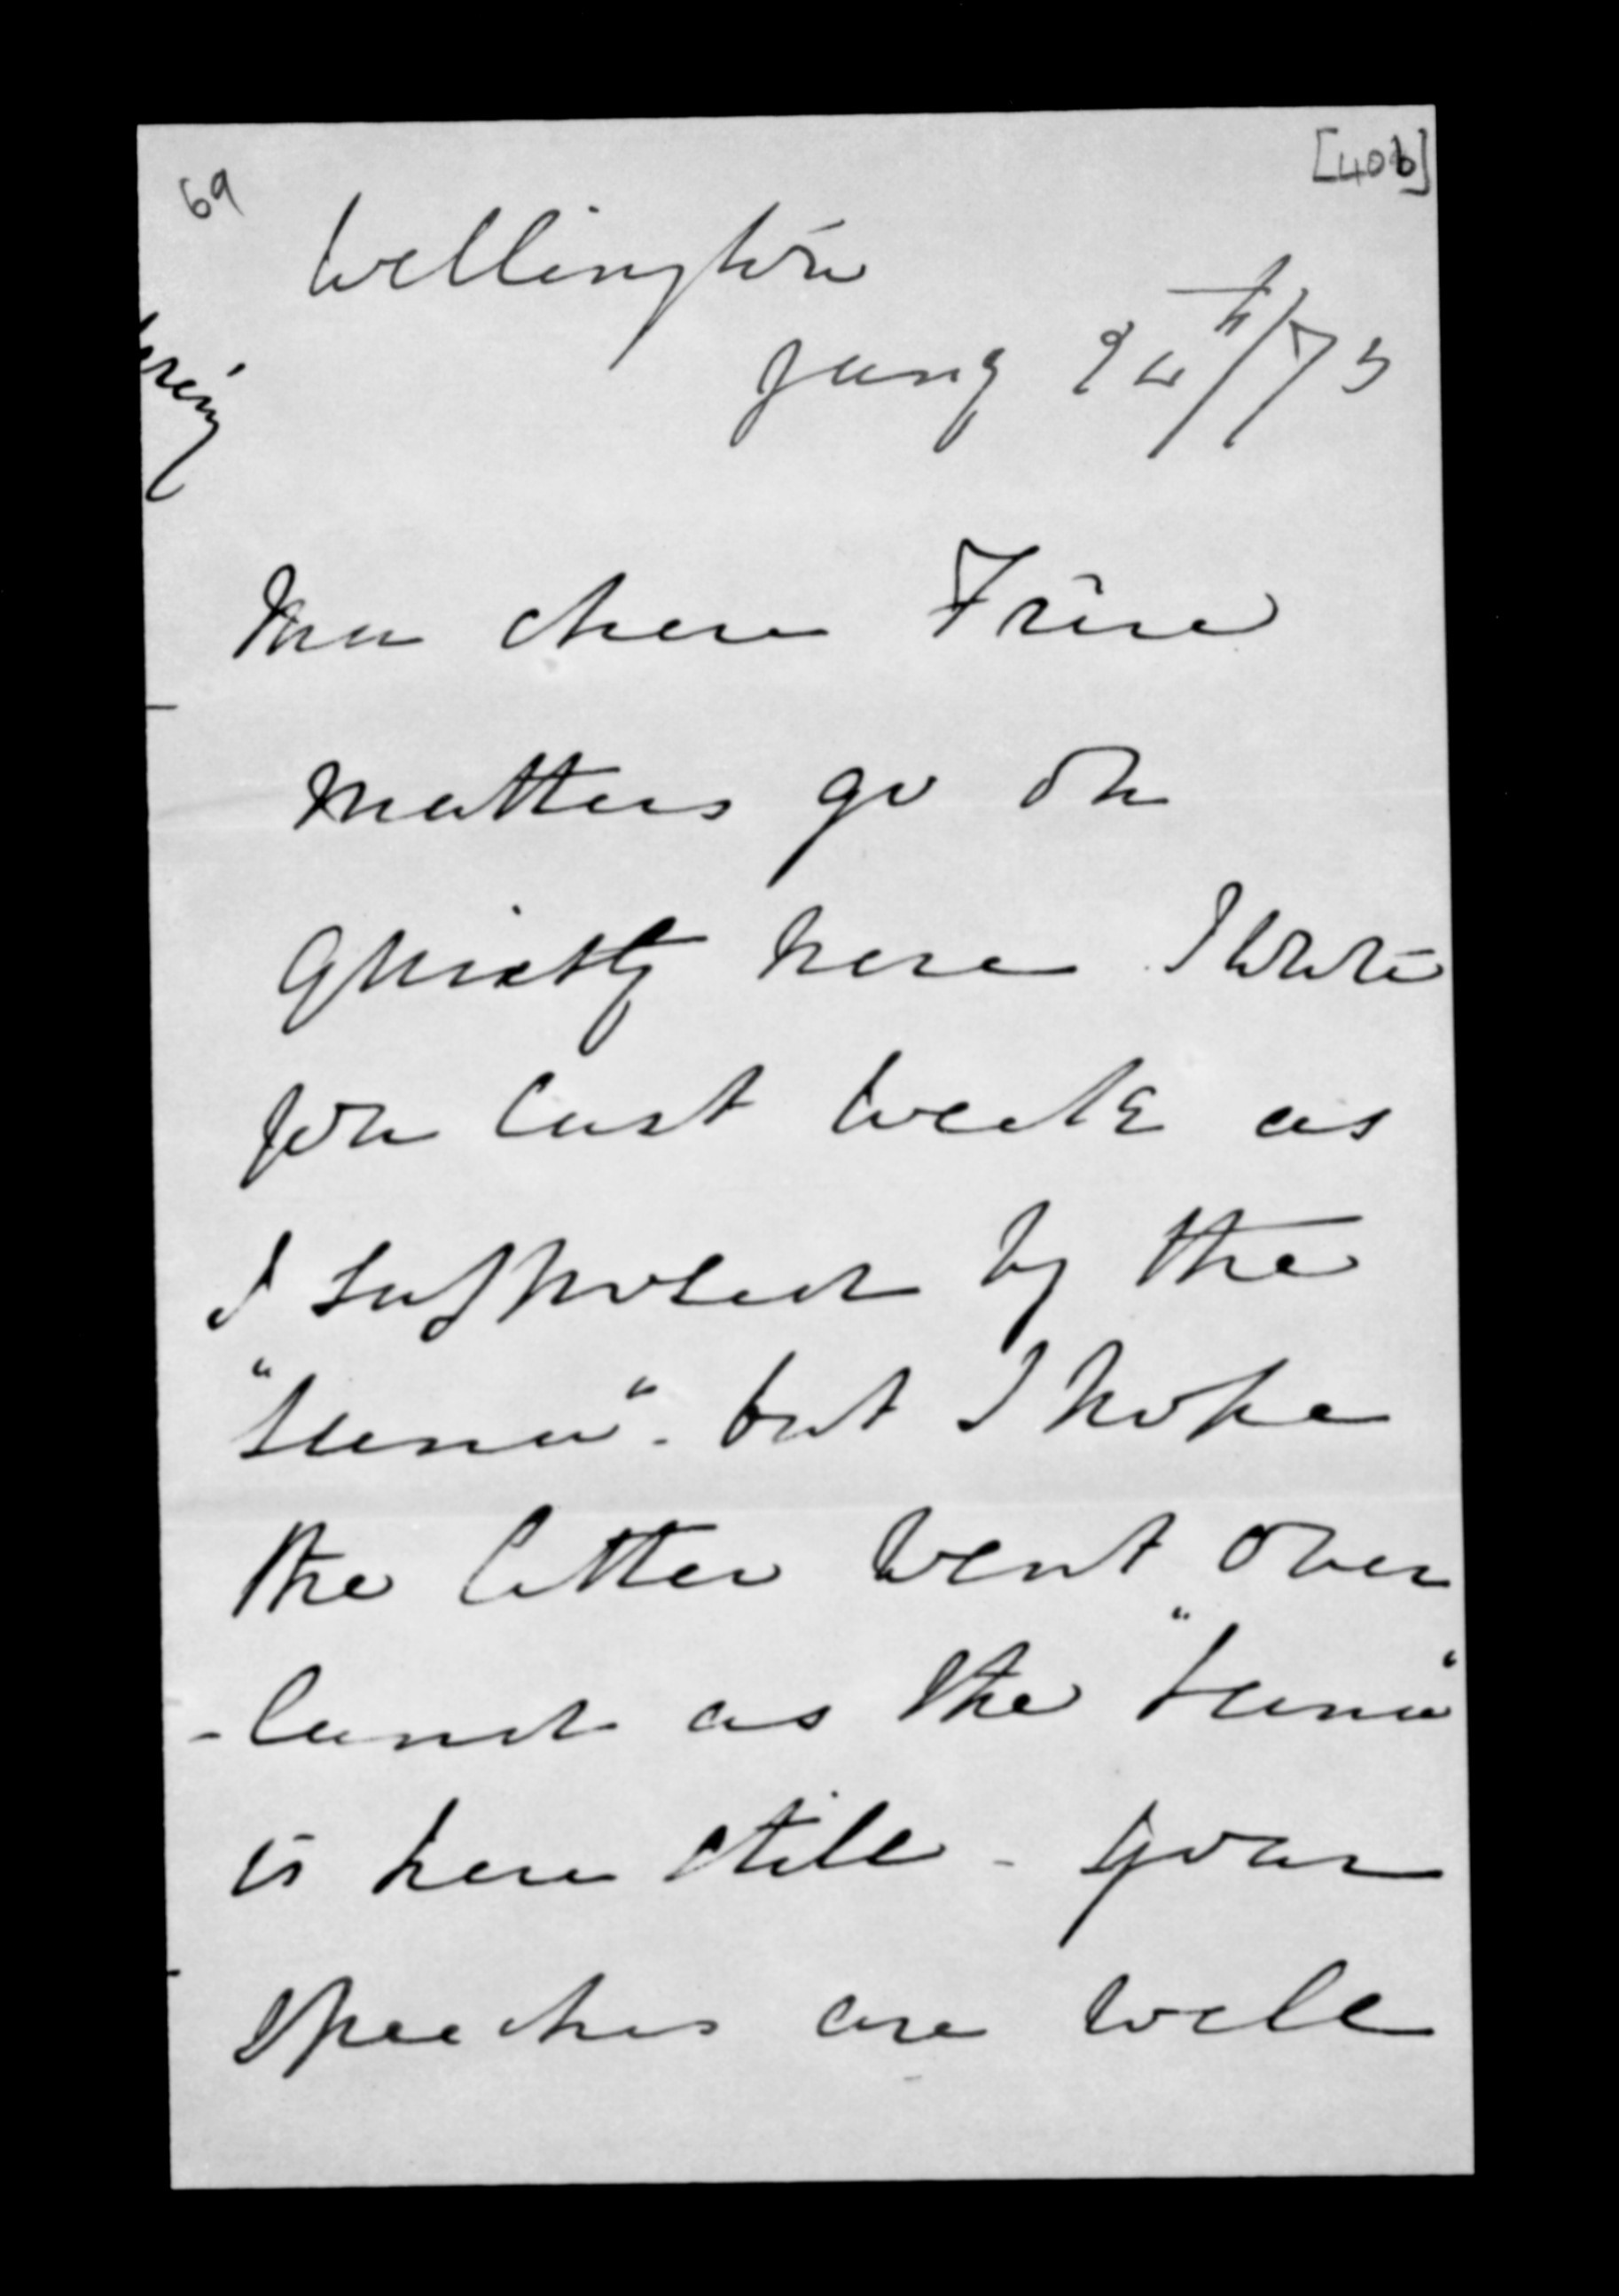 69
[40b]
Wellington
Jany 24th/75
Mon chere Frere
Matters go on
quietly here I wrote
you last week as
I supposed by the
"Luna" - but I hope
the letter went over
-land as the "Luna"
is here still - your
speeches are well